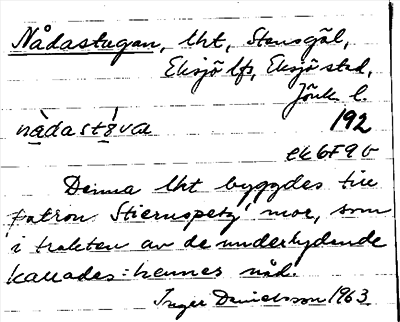 Nådastugan, lht, Stensgäl,
Eksjö lfs, Eksjö stad,
Jönk. l.
nàdastúva 192
ek 6F9b
Denna lht byggdes till
patron Stiernspetz' mor, som
i trakten av de underlydande
kallades: hennes nåd.
Inger Danielsson 1963